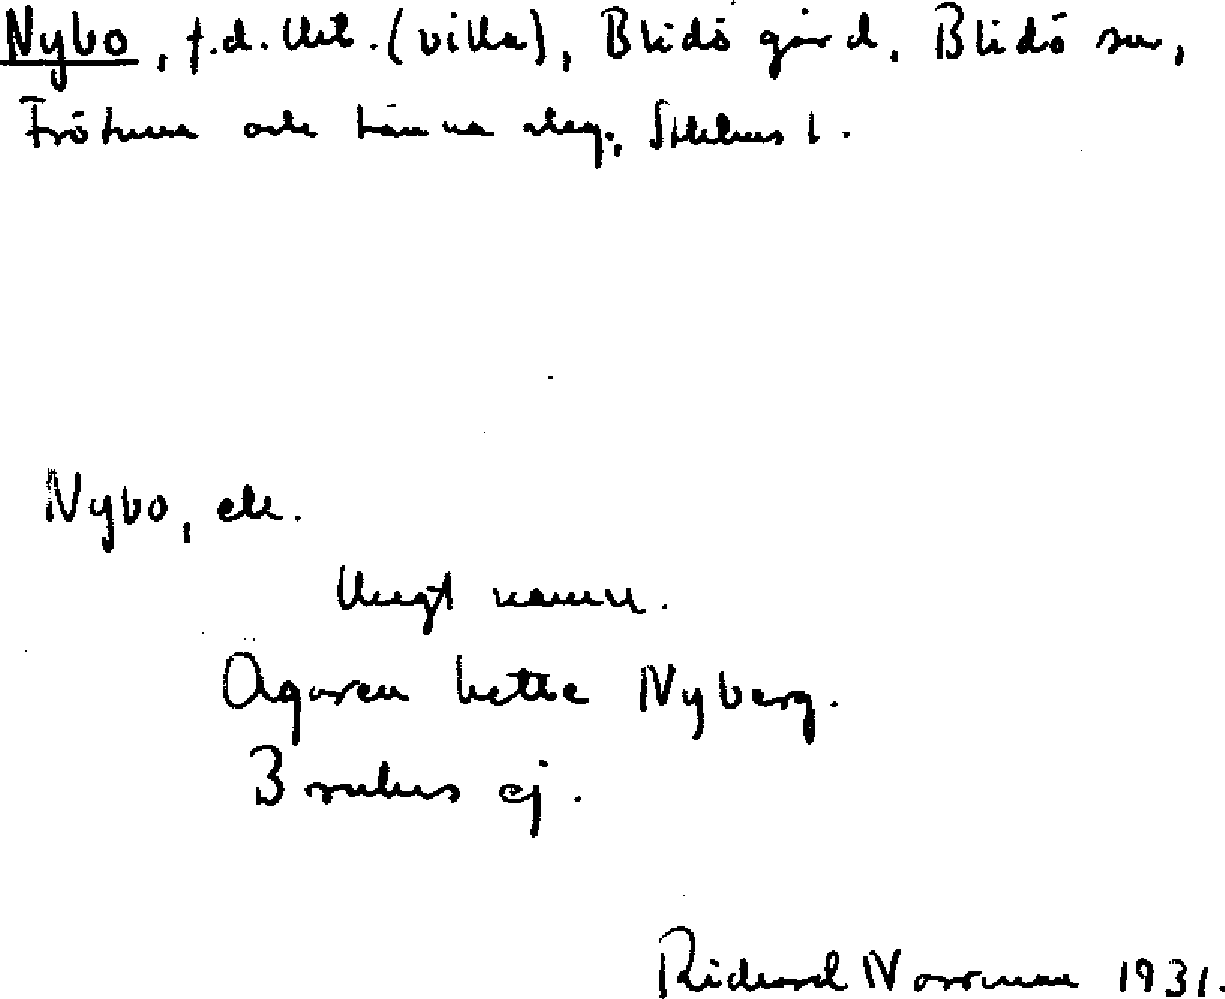 Nybo, f.d. lht. (villa), Blidö gård, Blidö sn,
Frötuna och Länna skeg., Sthlms l.
Nybo, ell.
Ungt namn.
Ägaren hette Nyberg.
Brukas ej.
Rickard Norrman 1931.